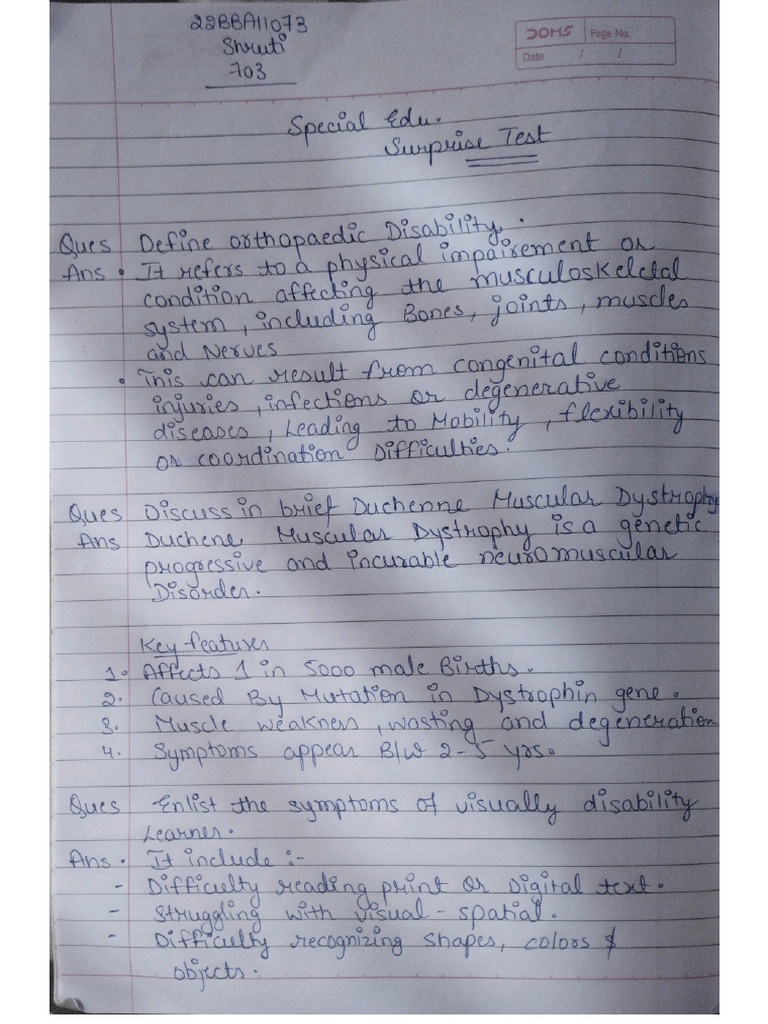 22BBA11073
Shruti
703
DOMS Page No.
Date / /
Special Edu.
Surprise Test
Ques Define orthopaedic Disability.
Ans • It refers to a physical impairement or
condition affecting the musculoskeletal
system, including Bones, joints, muscles
and Nerves
• This can result from congenital conditions
injuries, infections or degenerative
diseases, Leading to Mobility, flexibility
or coordination Difficulties.
Ques Discuss in brief Duchenne Muscular Dystrophy
Ans Duchene Muscular Dystrophy is a genetic
progressive and incurable neuromuscular
Disorder.
Key features
1. Affects 1 in 5000 male Births.
2. Caused By Mutation in Dystrophin gene.
3. Muscle weakness, wasting and degeneration
4. Symptoms appear B/W 2-5 yrs.
Ques Enlist the symptoms of visually disability
Learner.
Ans. It include :-
- Difficulty reading print or Digital text.
- Struggling with visual-spatial.
- Difficulty recognizing shapes, colors &
objects.